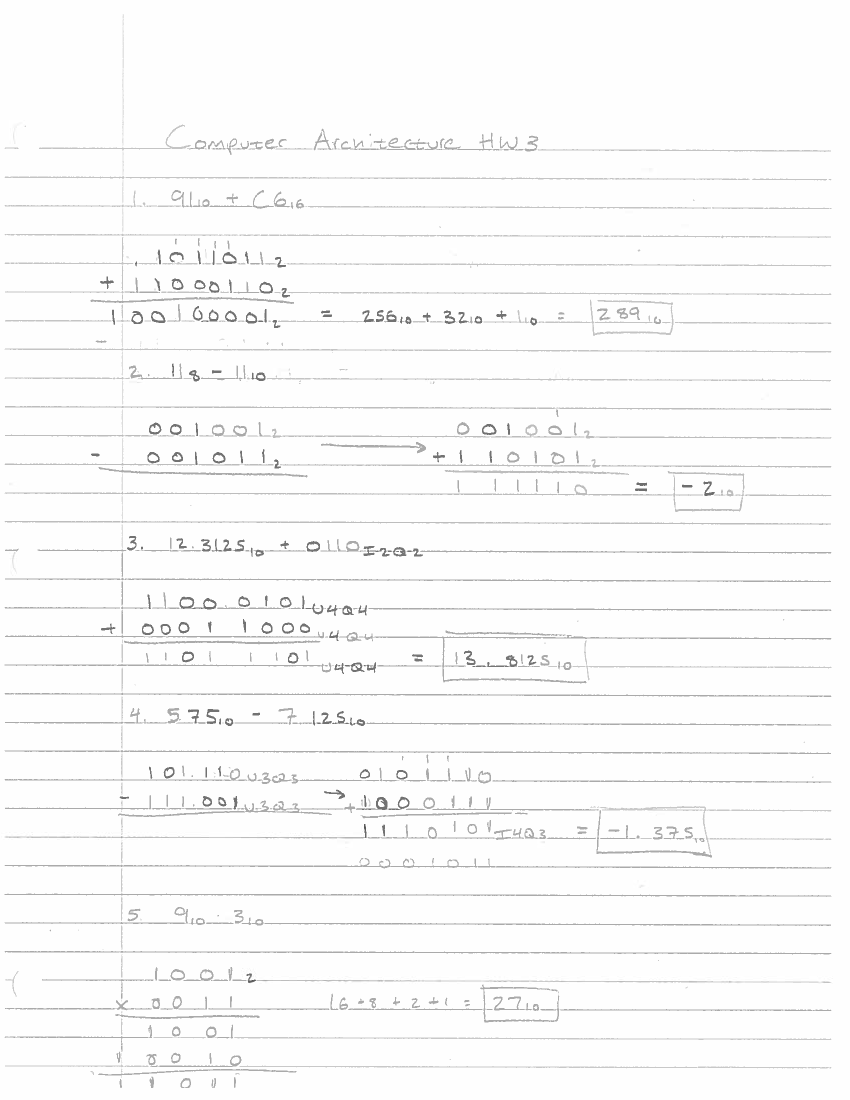 Computer Architecture HW3
1. 91₁₀ + C6₁₆
1 1 1 1
1011011₂
+ 11000110₂
100100001₂ = 256₁₀ + 32₁₀ + 1₁₀ = 289₁₀
2. 11₈ - 11₁₀
1
001001₂ → 001001₂
- 001011₂ + 110101₂
111110 = -2₁₀
3. 12.3125₁₀ + 0110 I2Q2
1100 0101 U4Q4
+ 0001 1000 U4Q4
1101 1101 U4Q4 = 13.8125₁₀
4. 5.75₁₀ - 7 125₁₀
1 1 1
101.110 U3Q3 0101110
- 111.001 U3Q3 → + 1000111
1110101 I4Q3 = -1.375₁₀
0001011
5. 9₁₀ · 3₁₀
1001₂
x 0011 16 + 8 + 2 + 1 = 27₁₀
1001
10010
11011